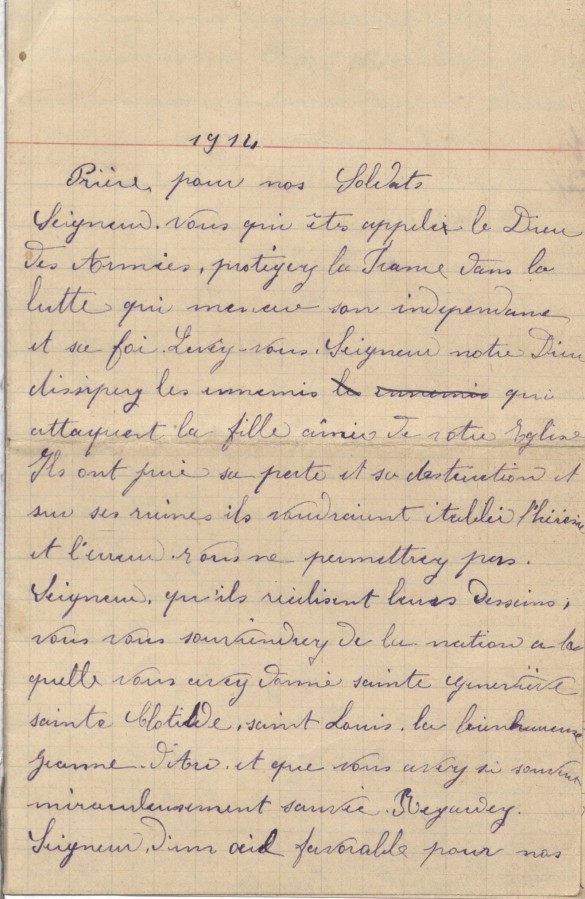 1914
Prière pour nos Soldats
Seigneur. Vous qui êtes appelé le Dieu
des Armées, protégez la France dans la
lutte qui menace son independance
et sa foi. Levez-vous. Seigneur notre Dieu
dissipez les ennemis les ennemis qui
attaquent la fille aînée de votre Eglise
Ils ont juré sa perte et sa destruction et
sur ses ruines ils voudraient établir l'hérésie
et l'erreur. Vous ne permettrez pas.
Seigneur, qu'ils réalisent leurs desseins;
vous vous souviendrez de la nation a la
quelle vous avez donné sainte Geneviève
sainte Clotilde, saint Louis. la bienheureuse
Jeanne d'Arc. et que vous avez si souvent
miraculeusement sauvée. Regardez.
Seigneur, d'un oeil favorable pour nos